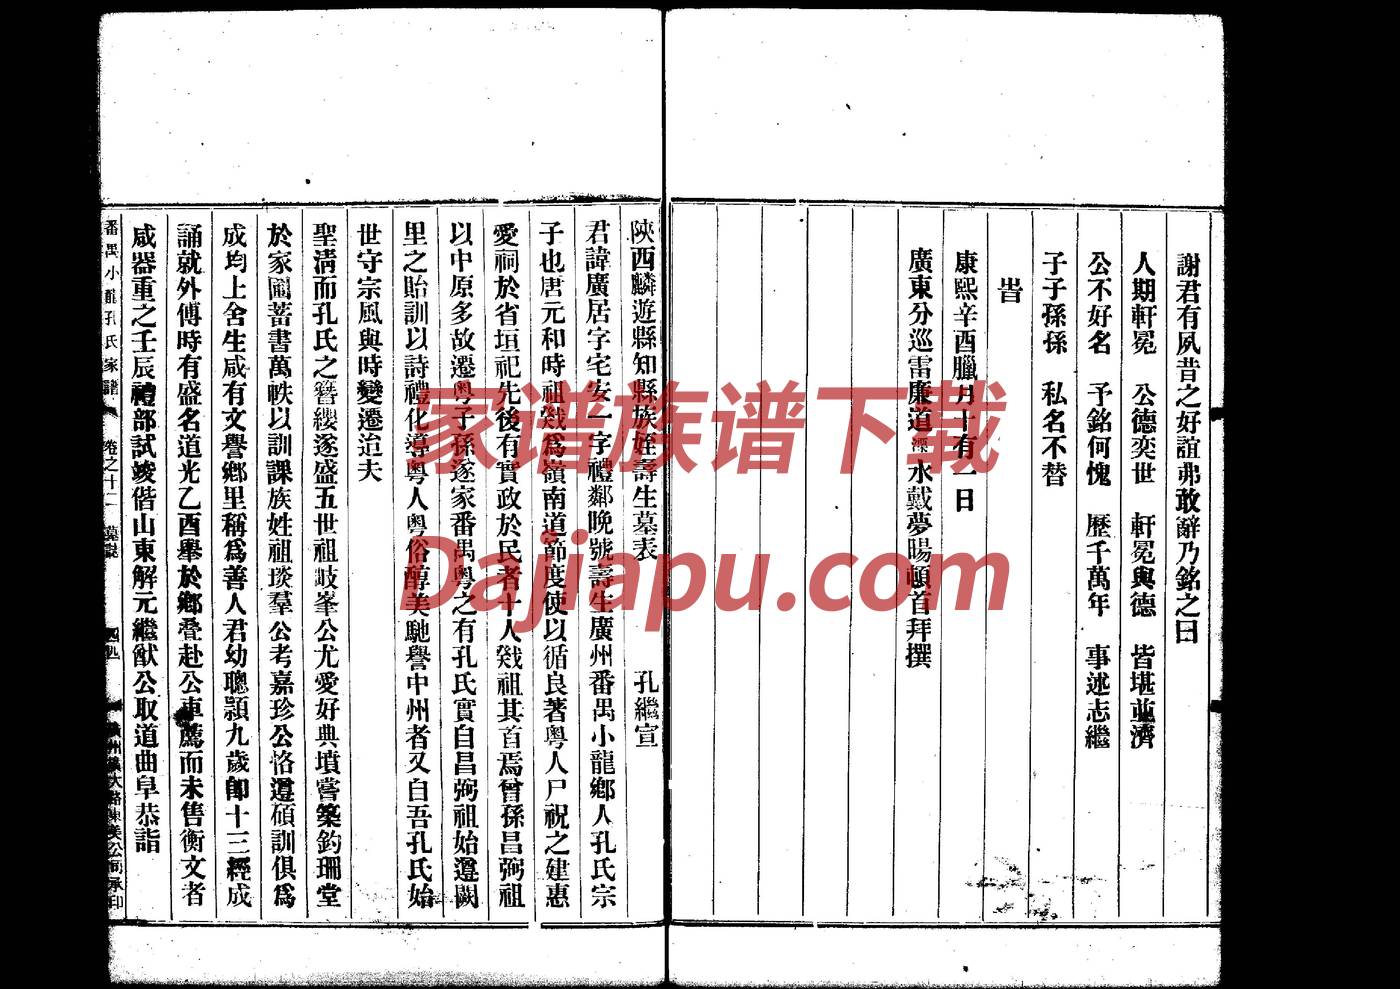 謝君有夙昔之好誼弗敢辭乃銘之曰
人期軒冕　公德奕世　軒冕與德　皆堪並濟
公不好名　予銘何愧　歷千萬年　事述志繼
子子孫孫　私名不替
旹
康熙辛酉臘月十有一日
廣東分巡雷廉道溧水戴夢暘頓首拜撰
陝西麟遊縣知縣族姪壽生墓表　孔繼宣
君諱廣居字宅安一字禮鄰晚號壽生廣州番禺小龍鄉人孔氏宗
子也唐元和時祖戣為嶺南道節度使以循良著粵人尸祝之建惠
愛祠於省垣祀先後有實政於民者十人戣祖其首焉曾孫昌弼祖
以中原多故遷粵子孫遂家番禺粵之有孔氏實自昌弼祖始遵闕
里之貽訓以詩禮化導粵人粵俗醇美馳譽中州者又自吾孔氏始
世守宗風與時變遷迨夫
聖清而孔氏之簪纓遂盛五世祖岐峯公尤愛好典墳嘗築鈞珊堂
於家圃蓄書萬帙以訓課族姓祖琰羣公考嘉珍公恪遵碩訓俱為
成均上舍生咸有文譽鄉里稱為善人君幼聰頴九歲即十三經成
誦就外傅時有盛名道光乙酉舉於鄉叠赴公車薦而未售衡文者
咸器重之壬辰禮部試竣偕山東解元繼猷公取道曲阜恭詣
番禺小龍孔氏家譜　卷之十二　墓表
廣州漢大路東美公司承印
家谱族谱下载
Dajiapu.com